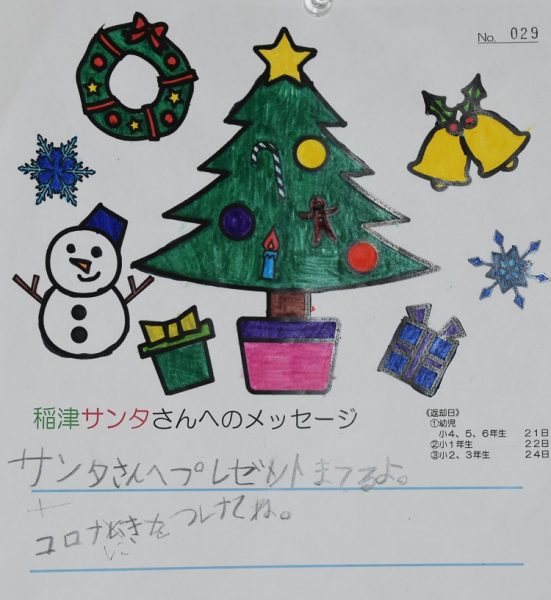 No. 029
稲津サンタさんへのメッセージ
《返却日》
①幼児
小4、5、6年生 21日
②小1年生 22日
③小2、3年生 24日
サンタさんへプレゼントまってるよ。
コロナにきをつけてね。